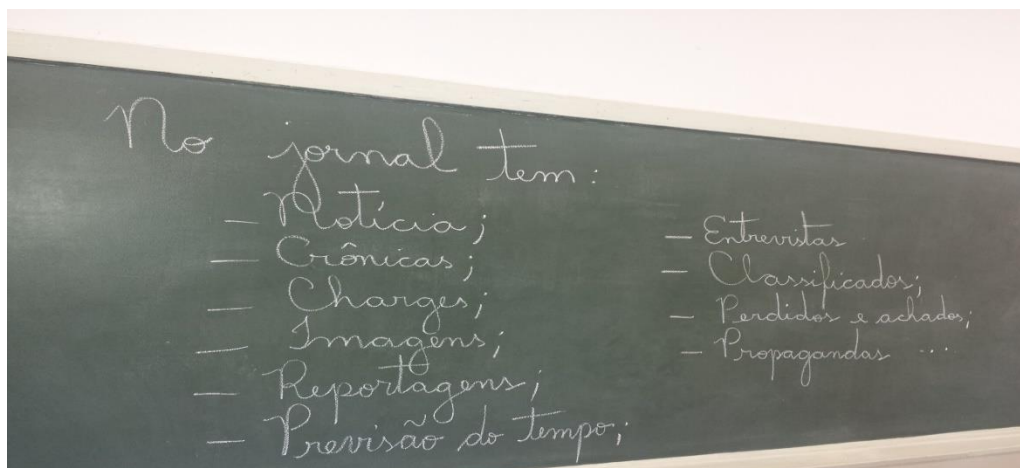 No jornal tem:
- Notícia;
- Crônicas;
- Charges;
- Imagens;
- Reportagens;
- Previsão do tempo;
- Entrevistas
- Classificados;
- Perdidos e achados;
- Propagandas ...